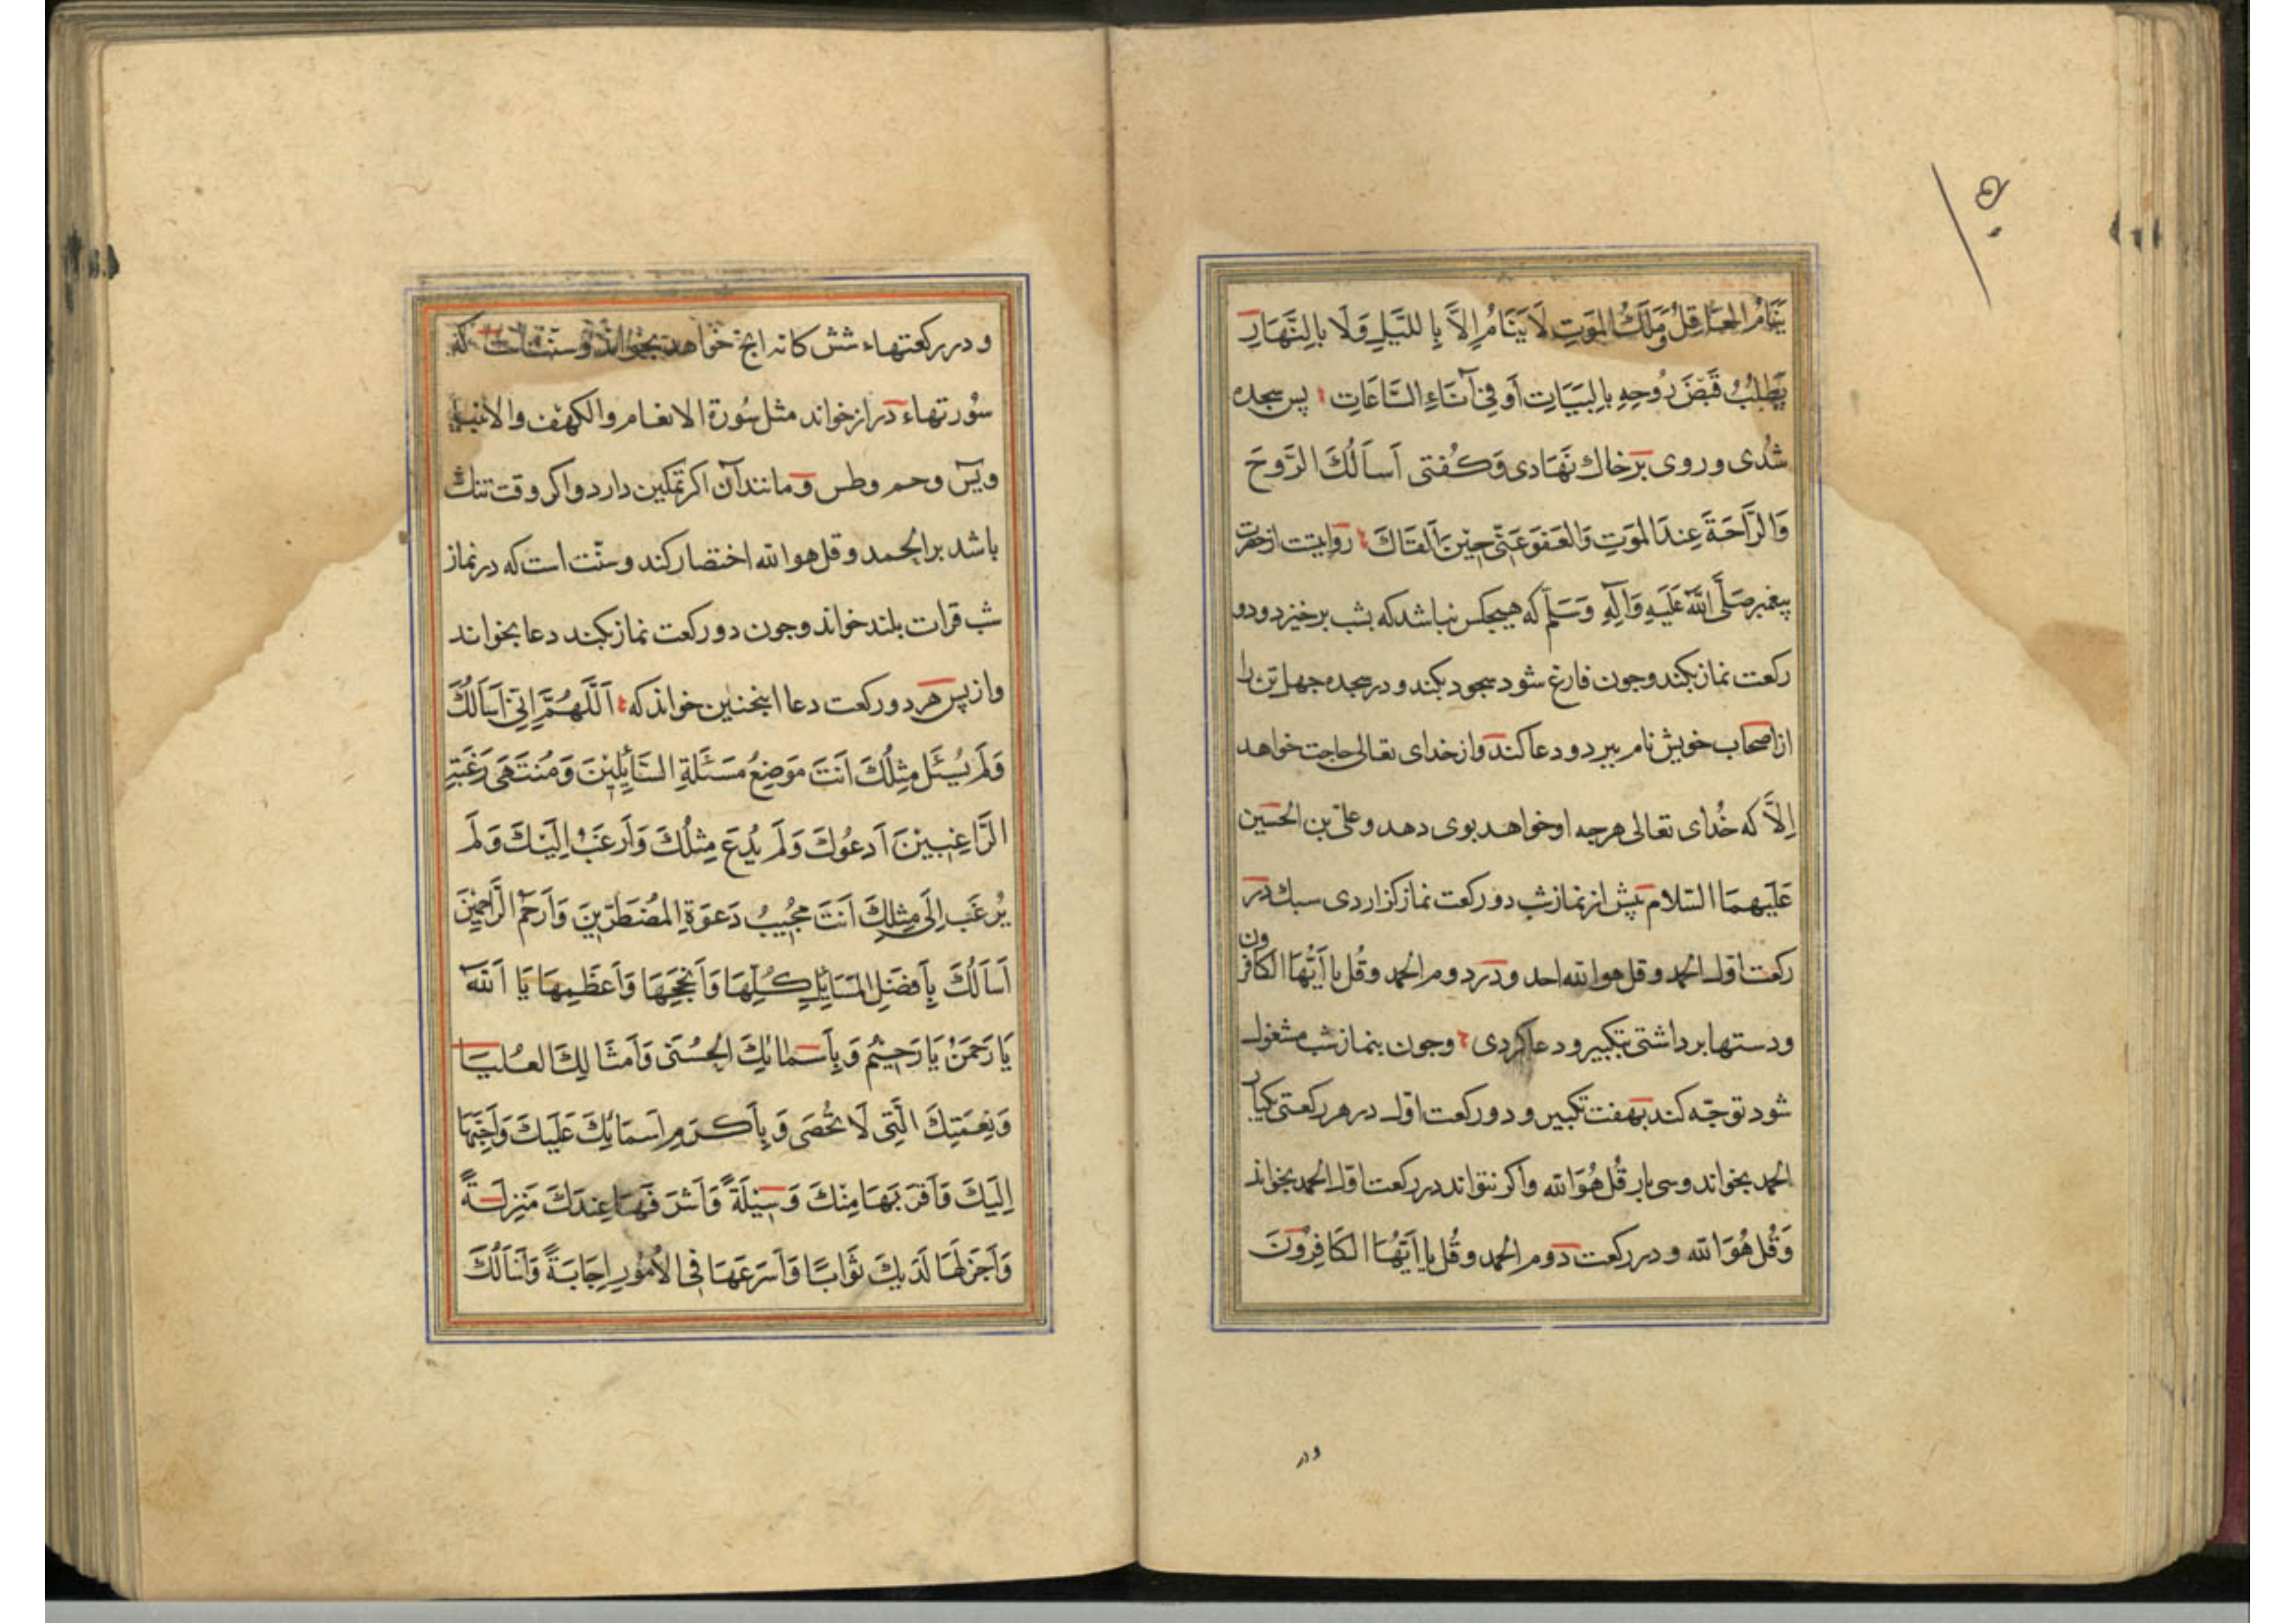 ۱۰۵
يَنَامُ العَاقِلُ وَمَلَكُ المَوتِ لَا يَنَامُ اِلَّا بِاللَّيلِ وَلَا بِالنَّهَارِ
يَطلُبُ قَبضَ رُوحِهِ بِالبَيَاتِ أَو فِى آنَاءِ السَّاعَاتِ پس سجده
شُدى و روى بر خاك نَهَادى وَ كُفتى اَسأَلُكَ الرَّوحَ
وَالرَّاحَةَ عِندَ المَوتِ وَالعَفوَ عَنّى حِينَ اَلقَاكَ روايتست از حضرت
پيغمبر صَلَّى اللّه عَلَيهِ وَآلِهِ وَسَلَّم كه هيچكس نباشد كه بشب برخيزد و دو
ركعت نماز بكند و جون فارغ شود سجود بكند و در سجده جهل تن را
از اصحاب خويش نام ببرد و دعا كند و از خداى تعالى حاجت خواهد
اِلَّا كه خُداى تعالى هرجه او خواهد بوى دهد و على بن الحسين
عَلَيهِمَا السّلام پيش از نماز شب دو ركعت نماز كزاردى سبك در
ركعت اوّل الحمد و قل هو اللّه احد و در دوم الحمد و قُل يا اَيُّهَا الكافرون
و دستها برداشتى بتكبير و دعا كردى و جون بنماز شب مشغول
شود توجّه كند بهفت تكبير و دو ركعت اوّل در هر ركعتى يكبار
الحمد بخواند و سى بار قُل هُوَ اللّه و اكر نتواند در ركعت اوّل الحمد بخواند
وَقُل هُوَ اللّه و در ركعت دوم الحمد و قُل يا اَيُّهَا الكَافِرُونَ
و در
و در ركعتهاء شش كانه آنج خواهد بخواند و سنّت است كه
سُورتهاء دراز خواند مثل سُورة الانعام و الكهف و الانبيا
و يس و حم و طس و مانند آن اكر تمكين دارد و اكر وقت تنك
باشد بر الحمد و قل هو اللّه اختصار كند و سنّت است كه در نماز
شب قرات بلند خواند و جون دو ركعت نماز بكند دعا بخواند
و از پس هر دو ركعت دعا اينجنين خواند كه اَللَّهُمَّ اِنّى اَسأَلُكَ
وَلَم يُسئَل مِثلُكَ اَنتَ مَوضِعُ مَسئَلَةِ السَّائِلِينَ وَمُنتَهَى رَغبَةِ
الرَّاغِبِينَ اَدعُوكَ وَلَم يُدعَ مِثلُكَ وَاَرغَبُ اِلَيكَ وَلَم
يُرغَب اِلَى مِثلِكَ اَنتَ مُجِيبُ دَعوَةِ المُضطَرّينَ وَاَرحَمُ الرَّاحِمِينَ
اَسأَلُكَ بِاَفضَلِ المَسَائِلِ كُلِّهَا وَاَنجَحِهَا وَاَعظَمِهَا يَا اَللّهُ
يَا رَحمَنُ يَا رَحِيمُ وَبِاَسمَائِكَ الحُسنَى وَاَمثَالِكَ العُليَا
وَنِعمَتِكَ الَّتِى لَا تُحصَى وَبِاَكرَمِ اَسمَائِكَ عَلَيكَ وَاَحَبِّهَا
اِلَيكَ وَاَقرَبِهَا مِنكَ وَسِيلَةً وَاَشرَفِهَا عِندَكَ مَنزِلَةً
وَاَجزَلِهَا لَدَيكَ ثَوَابًا وَاَسرَعِهَا فِى الاُمُورِ اِجَابَةً وَاَسأَلُكَ